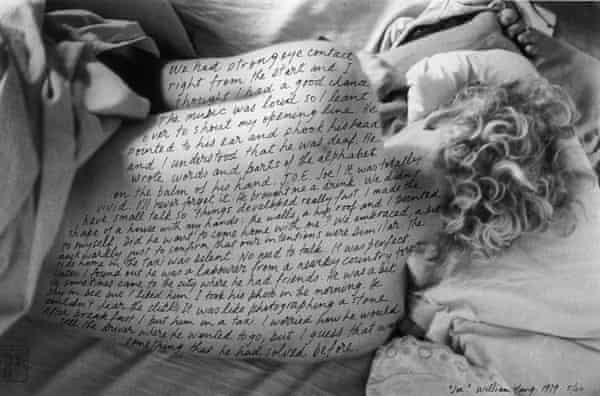 We had strong eye contact
right from the start and I
thought I had a good chance
The music was loud so I leant
over to shout my opening line. He
pointed to his ear and shook his head
and I understood that he was deaf. He
wrote words and parts of the alphabet
on the palm of his hand. J.O.E. Joe! It was totally
vivid. I'll never forget it. He brought me a drink. We didn't
have small talk so things developed really fast. I made the
shape of a house with my hands, the walls, a high roof and I pointed
to myself. Did he want to come home with me? We embraced, a bit
awkwardly just to confirm that our intentions were similar. The
ride home in the taxi was silent. No need to talk. It was perfect.
Later I found out he was a labourer from a nearby country town
he sometimes came to the city where he had friends. He was a bit
shy in bed but I liked him. I took his photo in the morning. He
couldn't hear the clicks. It was like photographing a stone.
After breakfast I put him in a taxi. I worried how he would
tell the driver where he wanted to go, but I guess that was
something he had solved before
"Joe." William Yang. 1979